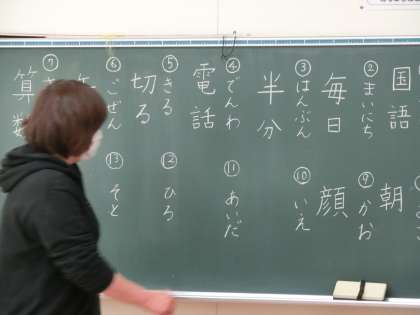 国語
②まいにち
毎日
③はんぶん
半分
④でんわ
電話
⑤きる
切る
⑥ごぜん
⑦
算数
朝
⑨かお
顔
⑩いえ
⑪あいだ
⑫ひる
⑬そと